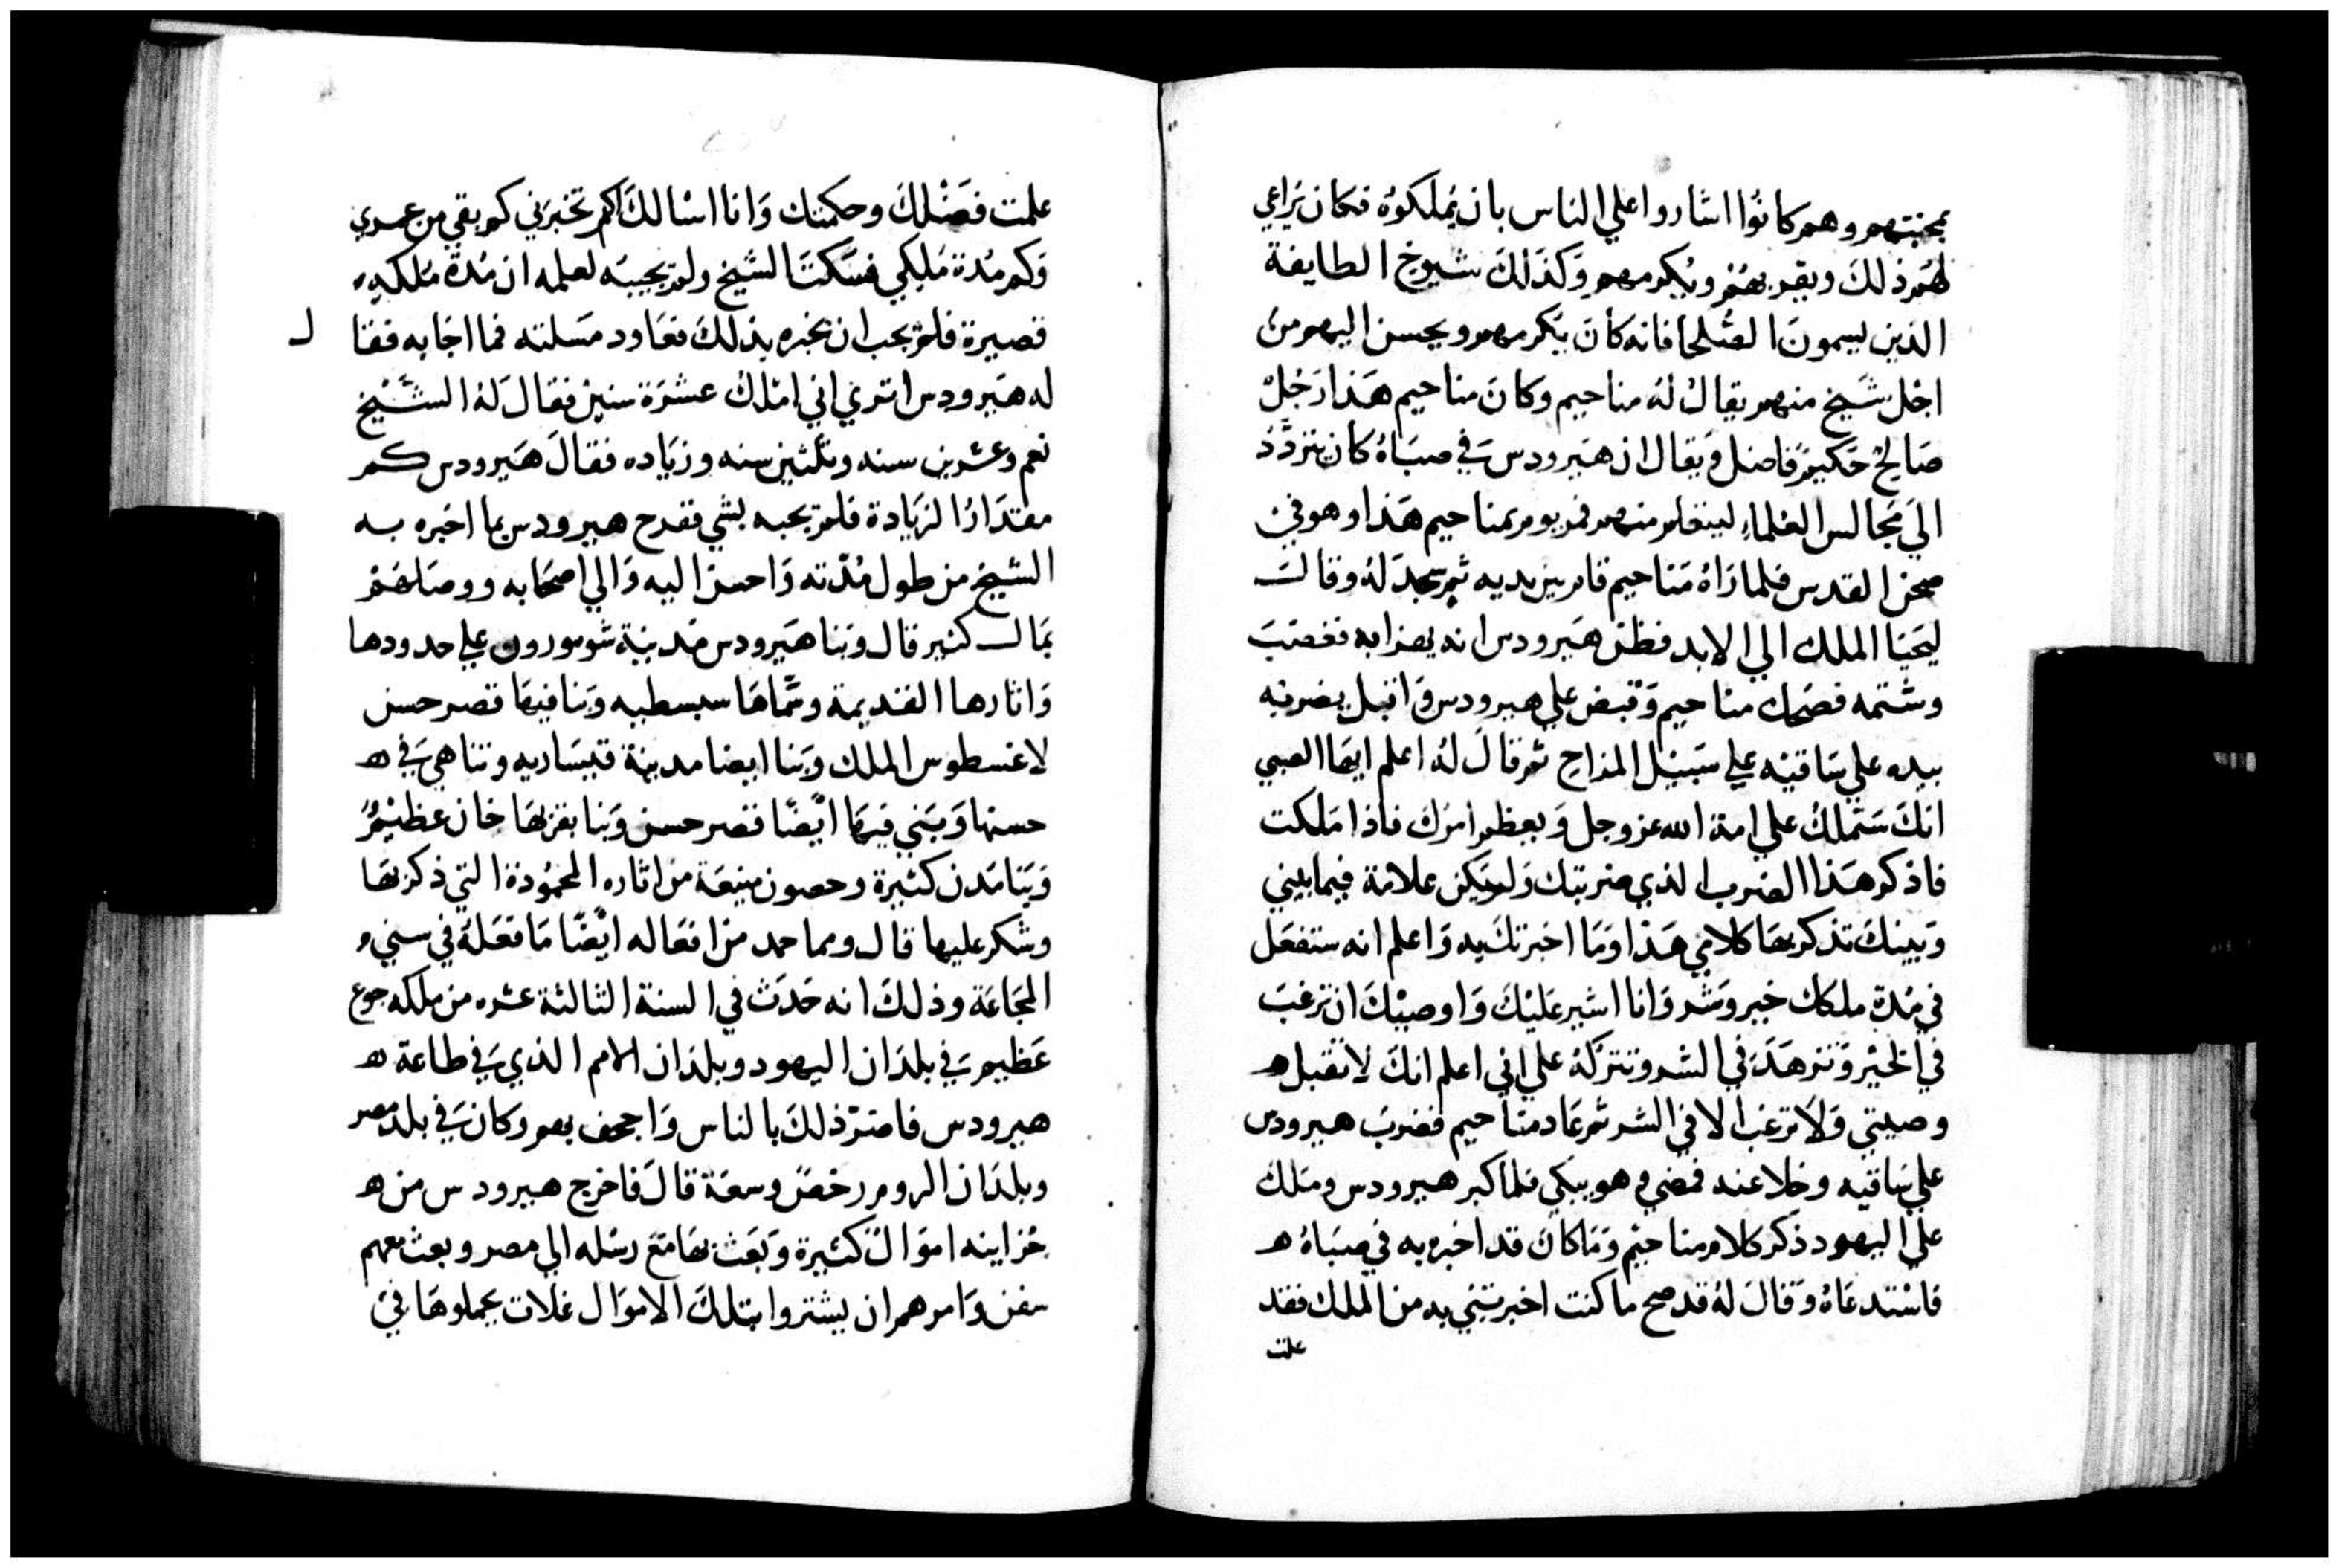 بمحبتهم وهم كانوا اشاروا علي الناس بان يملكوه فكان يراعي
لهم ذلك ويقربهم ويكرمهم وكذلك شيوخ الطايفة
الذين يسمون الصلحا فانه كان يكرمهم ويحسن اليهم من
اجل شيخ منهم يقال له مناحيم وكان مناحيم هذا رجل
صالح حكيم فاضل ويقال ان هيرودس في صباه كان يتردد
الي مجالس العلماء ليتعلم منهم فمر يوم بمناحيم هذا وهو في
صحن القدس فلما راه مناحيم قام بين يديه ثم سجد له وقال
ليحيا الملك الي الابد فظن هيرودس انه يهزا به فغضب
وشتمه فضحك مناحيم وقبض علي هيرودس واقبل يضربه
بيده علي ساقيه علي سبيل المزاح ثم قال له اعلم ايها الصبي
انك ستملك علي امة الله عز وجل ويعظم امرك فاذا ملكت
فاذكر هذا الضرب الذي ضربتك وليكن علامة فيما بيني
وبينك تذكر بها كلامي هذا وما اخبرتك به واعلم انه ستفعل
في مدة ملكك خير وشر وانا اشير عليك واوصيك ان ترغب
في الخير وتزهد في الشر وتتركه علي اني اعلم انك لا تقبل ه
وصيتي ولا ترغب الا في الشر ثم عاد مناحيم فضرب هيرودس
علي ساقيه وخلا عنه فمضي وهو يبكي فلما كبر هيرودس وملك
علي اليهود ذكر كلام مناحيم وما كان قد اخبره به في صباه ه
فاستدعاه وقال له قد صح ما كنت اخبرتني به من الملك فقد
علمت
علمت فضلك وحكمتك وانا اسالك كم تخبرني كم بقي من عمري
وكم مدة ملكي فسكت الشيخ ولم يجيبه لعلمه ان مدة ملكه
قصيرة فلم يحب ان يخبره بذلك فعاود مسلته فما اجابه فقا ل
له هيرودس اتري اني املك عشرة سنين فقال له الشيخ
نعم وعشرين سنه وثلثين سنه وزياده فقال هيرودس كم
مقتدار الزيادة فلم يجبه بشي ففرح هيرودس بما اخبره به
الشيخ من طول مدته واحسن اليه والي اصحابه ووصلهم
بمال كثير قال وبنا هيرودس مدينة شومورون علي حدودها
واثارها القديمة وسماها سبسطيه وبنا فيها قصر حسن
لاغسطوس الملك وبنا ايضا مدينة قيساريه وتناهي في ه
حسنها وبني فيها ايضا قصر حسن وبنا بقربها خان عظيم
وبنا مدن كثيرة وحصون منيعة من اثاره المحمودة التي ذكر بها
وشكر عليها قال ومما حمد من افعاله ايضا ما فعله في سني
المجاعة وذلك انه حدث في السنة الثالثة عشره من ملكه جوع
عظيم في بلدان اليهود وبلدان الامم الذي في طاعة ه
هيرودس فاضر ذلك بالناس واجحف بهم وكان في بلد مصر
وبلدان الروم رخص وسعة قال فاخرج هيرودس من ه
خزاينه اموال كثيرة وبعث بها مع رسله الي مصر وبعث معهم
سفن وامرهم ان يشتروا بتلك الاموال غلات يحملوها في